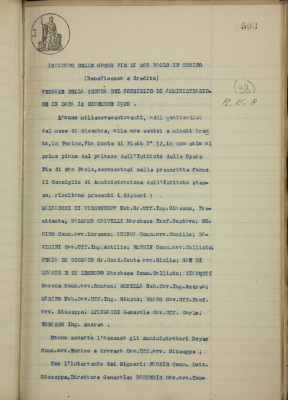 503
ISTITUTO DELLE OPERE PIE DI SAN PAOLO IN TORINO
(Beneficenza e Credito)
VERBALE DELLA SEDUTA DEL CONSIGLIO DI AMMINISTRAZIO-
NE IN DATA 14 DICEMBRE 1920.
L'anno millenovecentoventi, addì quattordici
del mese di dicembre, alle ore sedici e minuti tren
ta, in Torino, Via Monte di Pietà N° 32, in una sala al
primo piano del palazzo dell'Istituto delle Opere
Pie di San Paolo, convocatosi nelle prescritte forme
il Consiglio di Amministrazione dell'Istituto stes-
so, risultano presenti i Signori:
Gr.Uff.Ing.Giacomo, Pre-
sidente; BALSAMO CRIVELLI Marchese Prof.Gustavo; BO-
Comm.avv.Lorenzo; Comm.avv.Camillo; DA-
VICINI Cav.Uff.Ing.Attilio; Comm.avv.Callisto;
Gr.Cord.Conte avv.Giulio; SAN
Marchese Comm.Callisto;
Barone Comm.avv.Romano; Nob.Cav.Ing.Andrea;
Nob.Cav.Ing. Giusto; PRATO Cav.Uff.Prof.
avv. Giuseppe; SPINGARDI Generale Cav.Uff. Carlo;
Ing. Andrea.
Hanno scusato l'assenza gli Amministratori Boyer
Comm.avv.Enrico e Cravero Cav.Uff.avv. Giuseppe;
Con l'intervento dei Signori: Comm. Dott.
Giuseppe, Direttore Generale; Cav.avv.